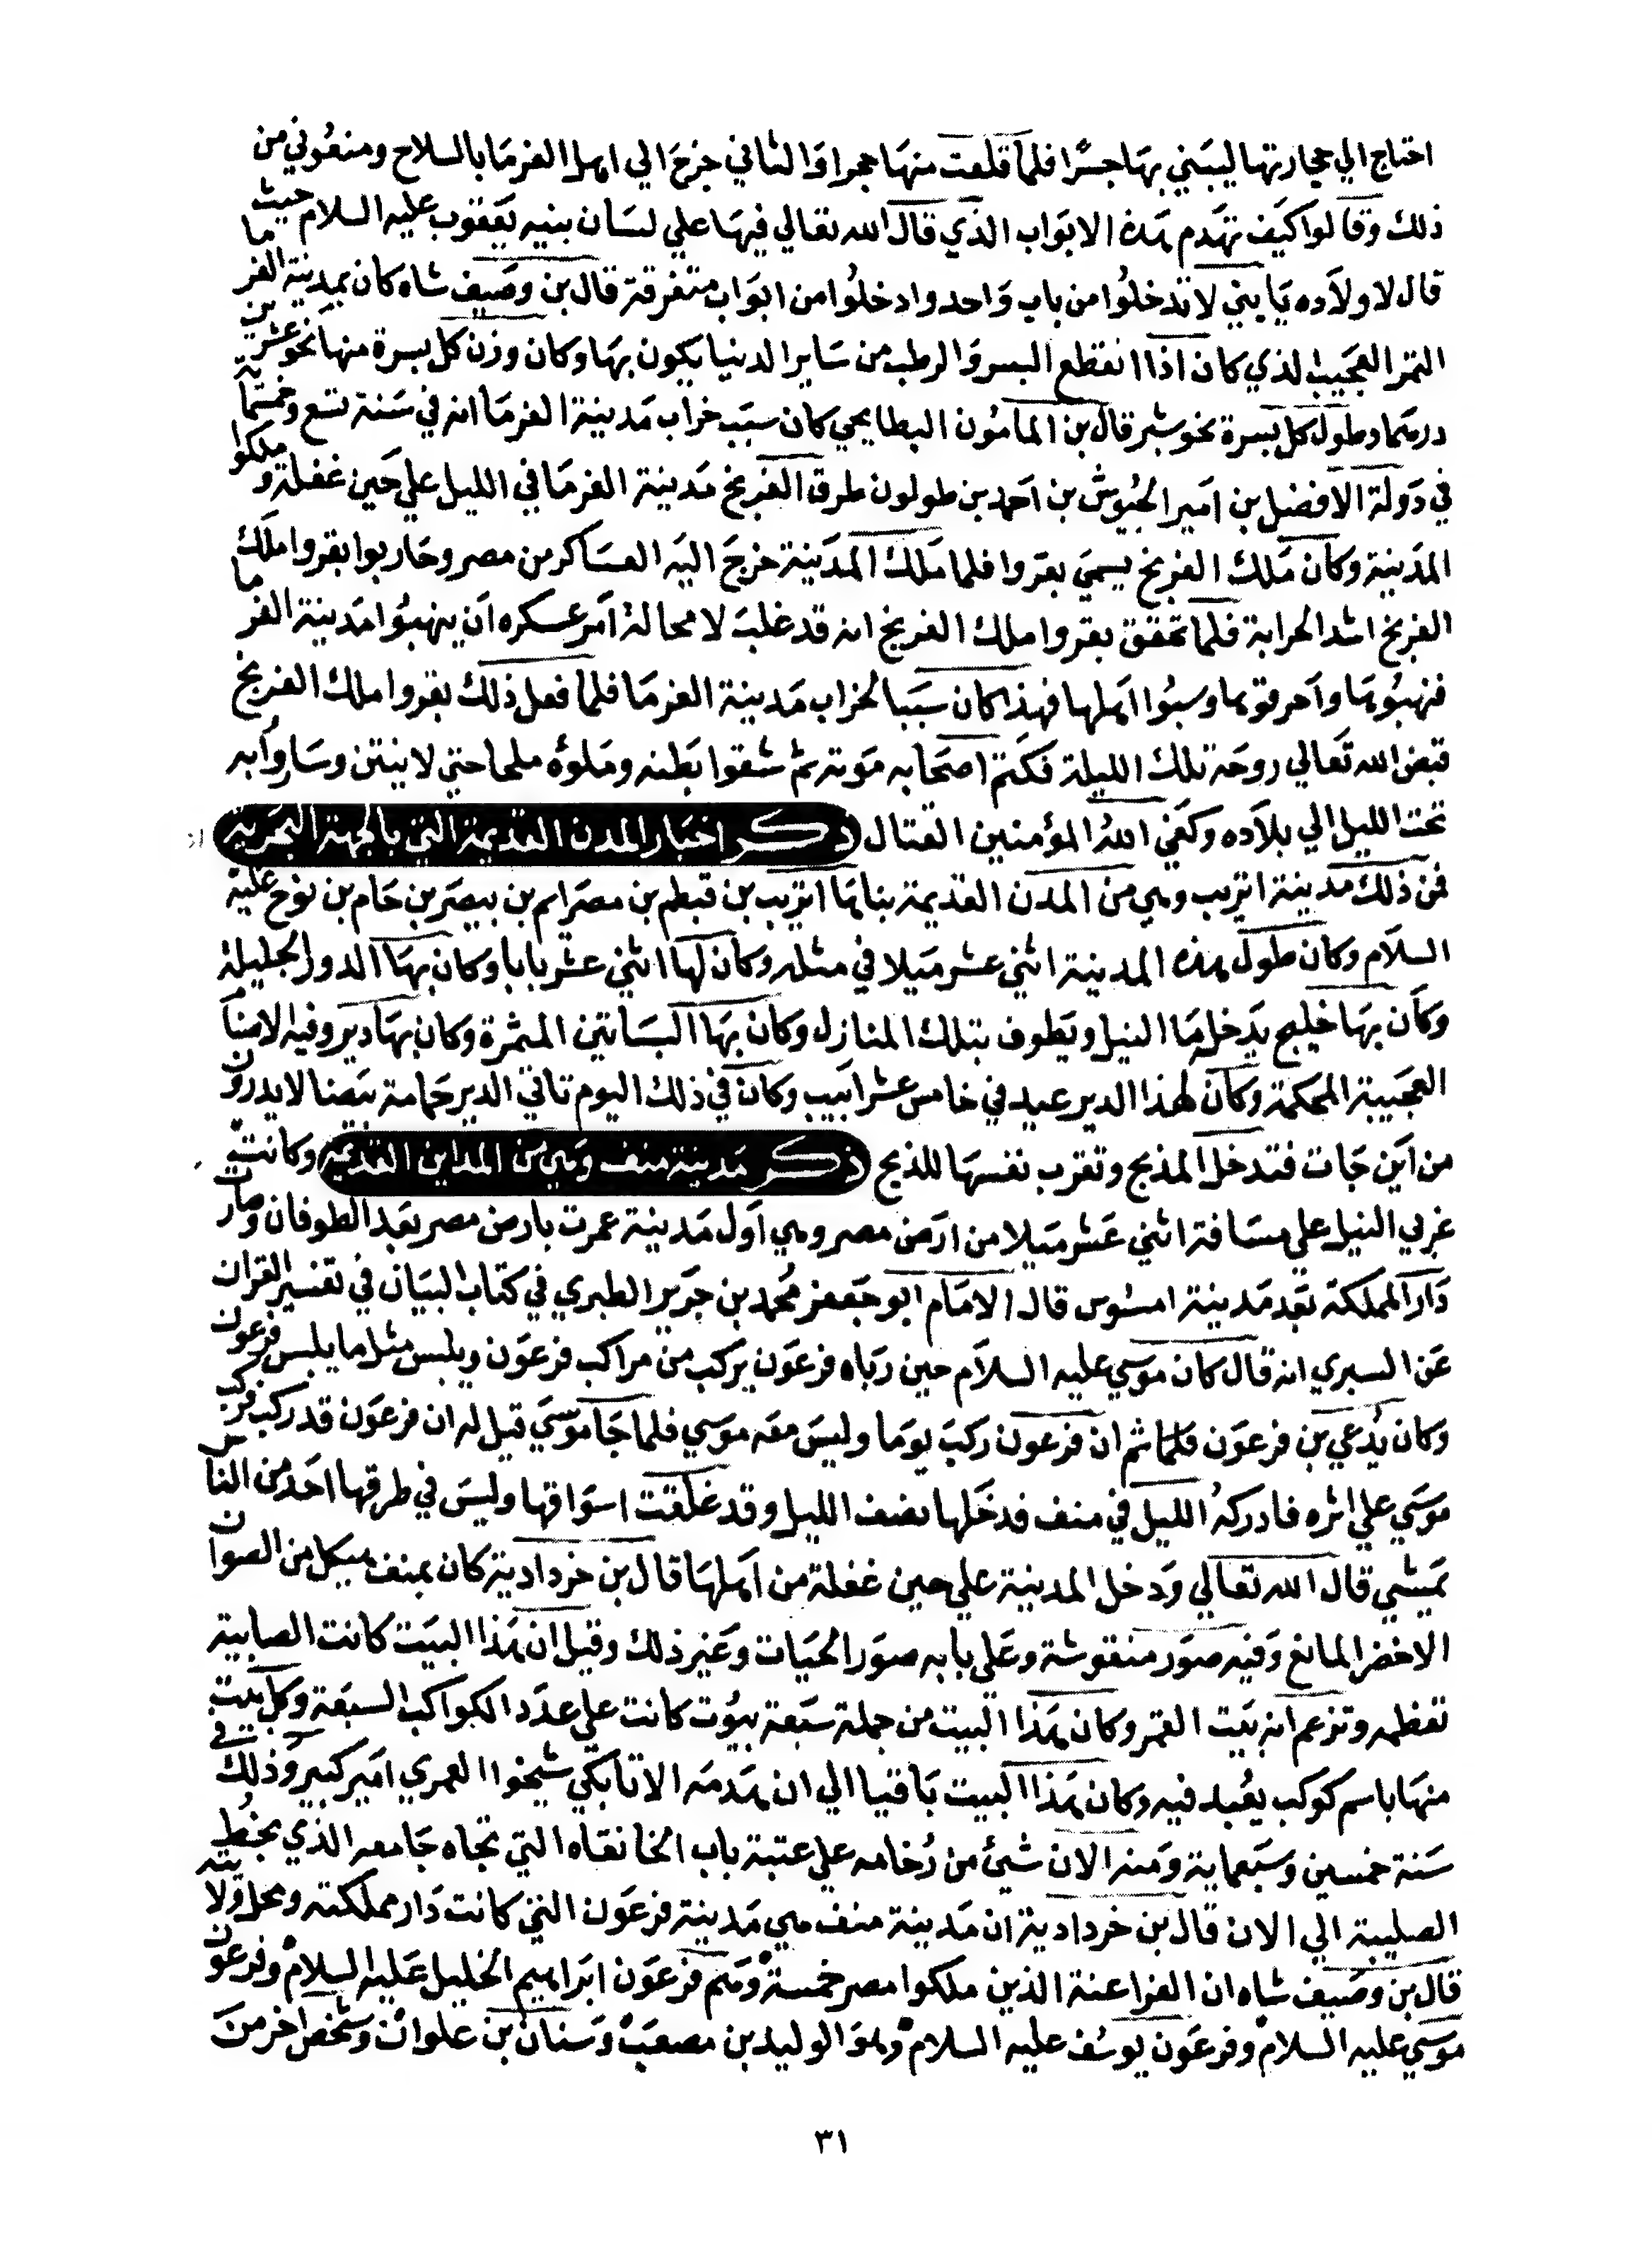 احتاج الي حجارتها ليبني بها جسرا فلما قلعت منها حجرا والثاني خرج الي اهل الفرما بالسلاح ومنعوني من
ذلك وقالوا كيف تهدم هذه الابواب الذي قال الله تعالي فيها علي لسان بنيه يعقوب عليه السلام حيث
قال لاولاده يا بني لا تدخلوا من باب واحد وادخلوا من ابواب متفرقة قال بن وصيف شاه كان بمدينة الفرما
التمر العجيب الذي كان اذا انقطع البسر والرطب من ساير الدنيا يكون بها وكان وزن كل بسرة منها نحو عشرين
درهما وطول كل بسرة نحو شبر قال بن المامون البطايحي كان سبب خراب مدينة الفرما انه في سنة تسع وخمسماية
في دولة الافضل بن امير الجيوش بن احمد بن طولون طرق الفرنج مدينة الفرما في الليل علي حين غفلة وملكوا
المدينة وكان ملك الفرنج يسمي بقروا فلما ملك المدينة خرج اليه العساكر من مصر وحاربوا بقروا ملك
الفرنج اشد الحرابة فلما تحقق بقروا ملك الفرنج انه قد غلب لا محالة امر عسكره ان ينهبوا مدينة الفرما
فنهبوها واحرقوها وسبوا اهلها فهذا كان سببا لخراب مدينة الفرما فلما فعل ذلك بقروا ملك الفرنج
قبض الله تعالي روحه تلك الليلة فكتم اصحابه موته ثم شقوا بطنه وملوه ملحا حتي لا ينتن وساروا به
تحت الليل الي بلاده وكفي الله المؤمنين القتال ذكر اخبار المدن القديمة التي بالجهة البحرية
فمن ذلك مدينة اتريب وهي من المدن القديمة بناها اتريب بن قبطم بن مصرايم بن بيصر بن حام بن نوح عليه
السلام وكان طول هذه المدينة اثني عشر ميلا في مثله وكان لها اثني عشر بابا وكان بها الدور الجليلة
وكان بها خليج يدخله ما النيل ويطوف بتلك المنازل وكان بها البساتين المثمرة وكان بها دير وفيه الاصنام
العجيبة المحكمة وكان لهذا الدير عيد في خامس عشر ابيب وكان في ذلك اليوم تاتي الدير حمامة بيضا لا يدرون
من اين جات فتدخل المذبح وتقرب نفسها للذبح ذكر مدينة منف وهي من المداين القديمة وكانت
غربي النيل علي مسافة اثني عشر ميلا من ارض مصر وهي اول مدينة عمرت بارض مصر بعد الطوفان وصارت
دار المملكة بعد مدينة امسوس قال الامام ابو جعفر محمد بن جرير الطبري في كتاب البيان في تفسير القران
عن السبري انه قال كان موسي عليه السلام حين رباه فرعون يركب من مراكب فرعون ويلبس مثل ما يلبس فرعون
وكان يدعي بن فرعون فلما ثم ان فرعون ركب يوما وليس معه موسي فلما جا موسي قيل له ان فرعون قد ركب فركب
موسي علي اثره فادركه الليل في منف فدخلها نصف الليل وقد غلقت اسواقها وليس في طرقها احد من الناس
يمشي قال الله تعالي ودخل المدينة علي حين غفلة من اهلها قال بن خردادبة كان بمنف هيكل من الصوان
الاخضر المانع وفيه صور منقوشة وعلي بابه صور الحيات وغير ذلك وقيل ان هذا البيت كانت الصابية
تعظمه وتزعم انه بيت القمر وكان هذا البيت من جملة سبعة بيوت كانت علي عدد الكواكب السبعة وكل بيت
منها باسم كوكب يعبد فيه وكان هذا البيت باقيا الي ان هدمه الاتابكي شيخوا العمري امير كبير وذلك في
سنة خمسين وسبعماية ومنه الان شيئ من رخامه علي عتبة باب الخانقاه التي تجاه جامعه الذي بخط
الصليبة الي الان قال بن خردادبة ان مدينة منف هي مدينة فرعون التي كانت دار مملكته ومحل ولايته
قال بن وصيف شاه ان الفراعنة الذين ملكوا مصر خمسة وهم فرعون ابراهيم الخليل عليه السلام وفرعون
موسي عليه السلام وفرعون يوسف عليه السلام وهو الوليد بن مصعب وسنان بن علوان وشخص اخر من
٣١